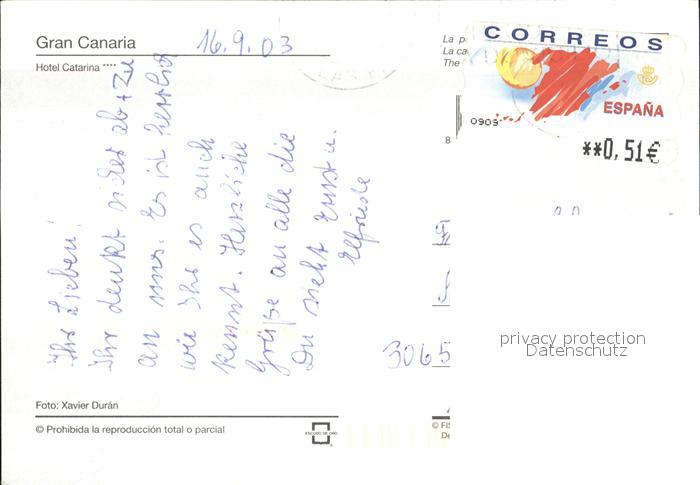 Gran Canaria
16.9.03
Hotel Catarina ****
Ihr Lieben!
Ihr denkt sicher ab + zu
an uns. Es ist herrlich
wie Ihr es auch
kennt. Herzliche
Grüße an alle die
Du siehst Ernst u.
Elfriede
Foto: Xavier Durán
© Prohibida la reproducción total o parcial
ESCUDO DE ORO
La
La ca
The
8
CORREOS
ESPAÑA
0909
**0,51€
3065
privacy protection
Datenschutz
© FIS
De